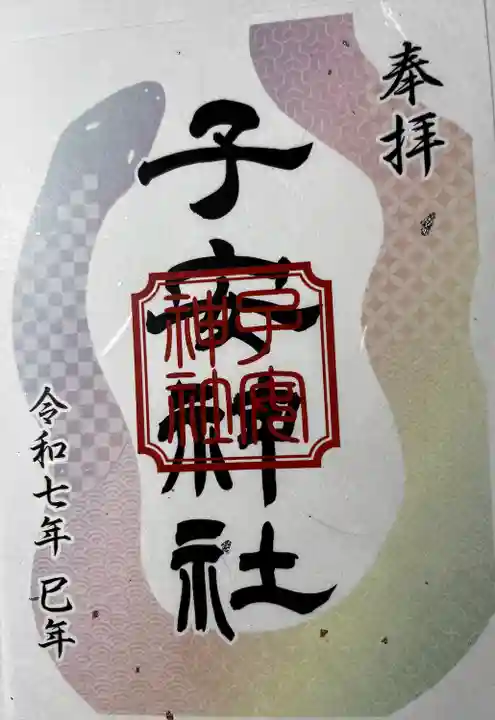 奉拝
子安神社
子安
神社
令和七年 巳年